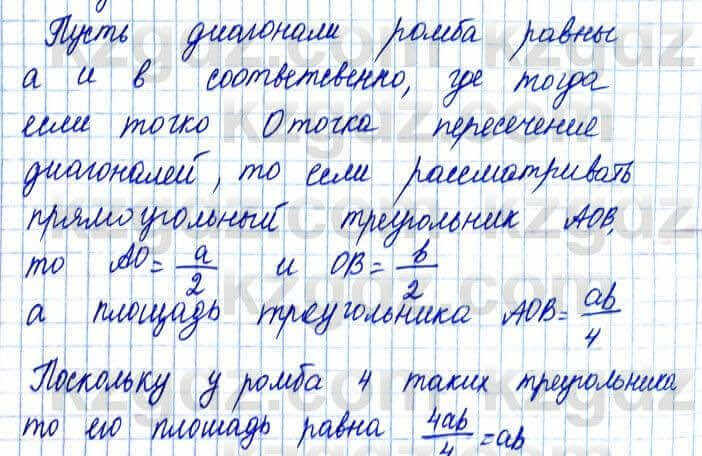 Пусть диагонали ромба равны
а и в соответсвенно, где тогда
если точко О точка пересечение
диагоналей, то если рассматривать
прямоугольный треугольник AOB,
то AO = a/2 и OB = b/2
а площадь треугольника AOB = ab/4
Поскольку у ромба 4 таких треугольника
то его площадь равна 4ab/4 = ab